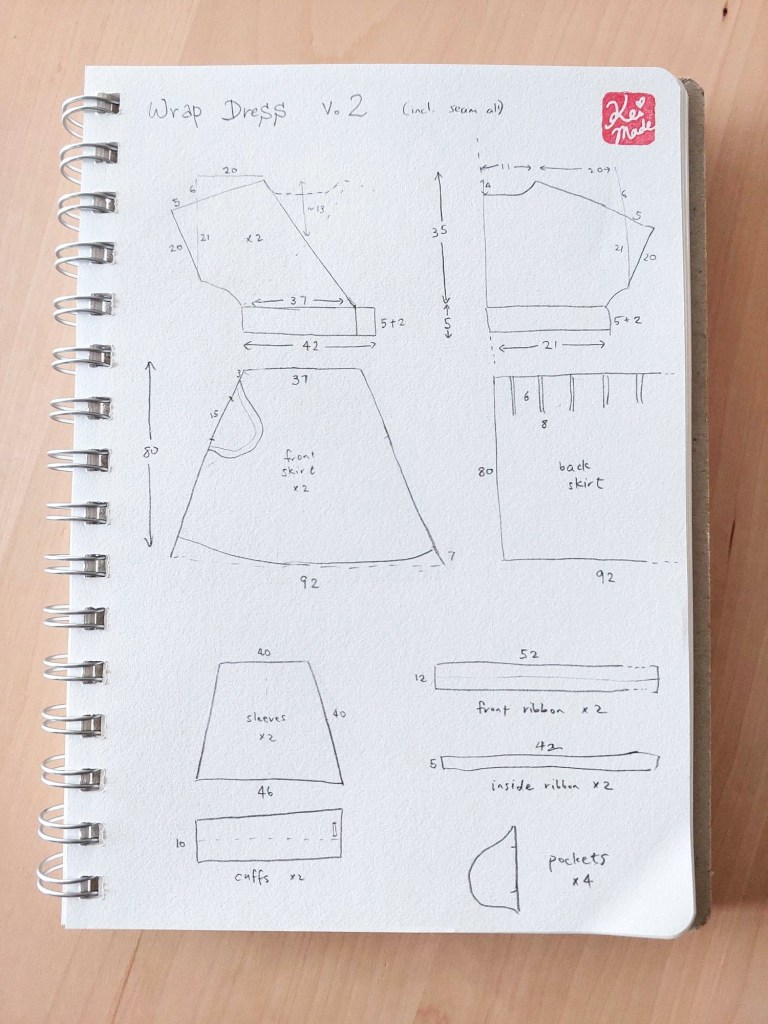 Wrap Dress V.2 (incl. seam all)
Kei
Made
20
6
5
20
21
x2
~13
37
5+2
42
11
20
4
6
5
35
21
20
5
5+2
21
3
37
15
80
front
skirt
x2
92
7
6
8
80
back
skirt
92
40
sleeves
x2
40
46
52
12
front ribbon x2
42
5
inside ribbon x2
10
cuffs x2
pockets
x4